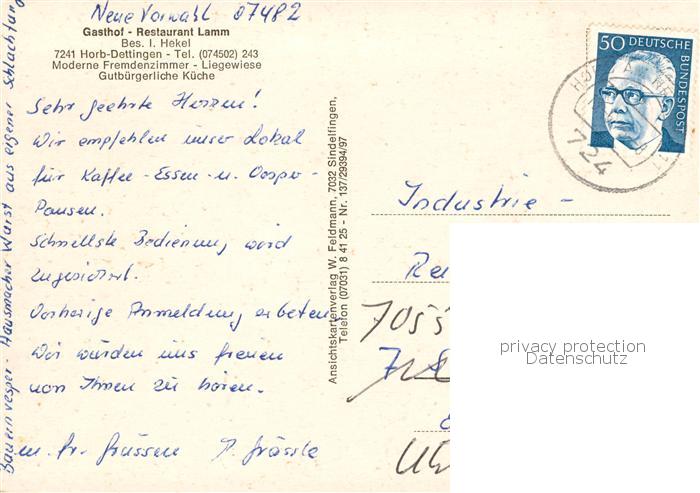 Neue Vorwahl 07482
Gasthof - Restaurant Lamm
Bes. I. Hekel
7241 Horb-Dettingen - Tel. (074502) 243
Moderne Fremdenzimmer - Liegewiese
Gutbürgerliche Küche
Sehr geehrte Herren!
Wir empfehlen unser Lokal
für Kaffee-Essen- u. Vesper-
Pausen.
Schnellste Bedienung wird
zugesichert.
Vorherige Anmeldung erbeten,
Wir würden uns freuen
von Ihnen zu hören.
m. fr. Grüssen
Bauernvesper - Hausmacher Wurst aus eigener Schlachtung
Ansichtskartenverlag W. Feldmann, 7032 Sindelfingen,
Telefon (07031) 8 41 25 - Nr. 137/29394/97
50 DEUTSCHE
BUNDESPOST
724
Industrie-
7055
privacy protection
Datenschutz